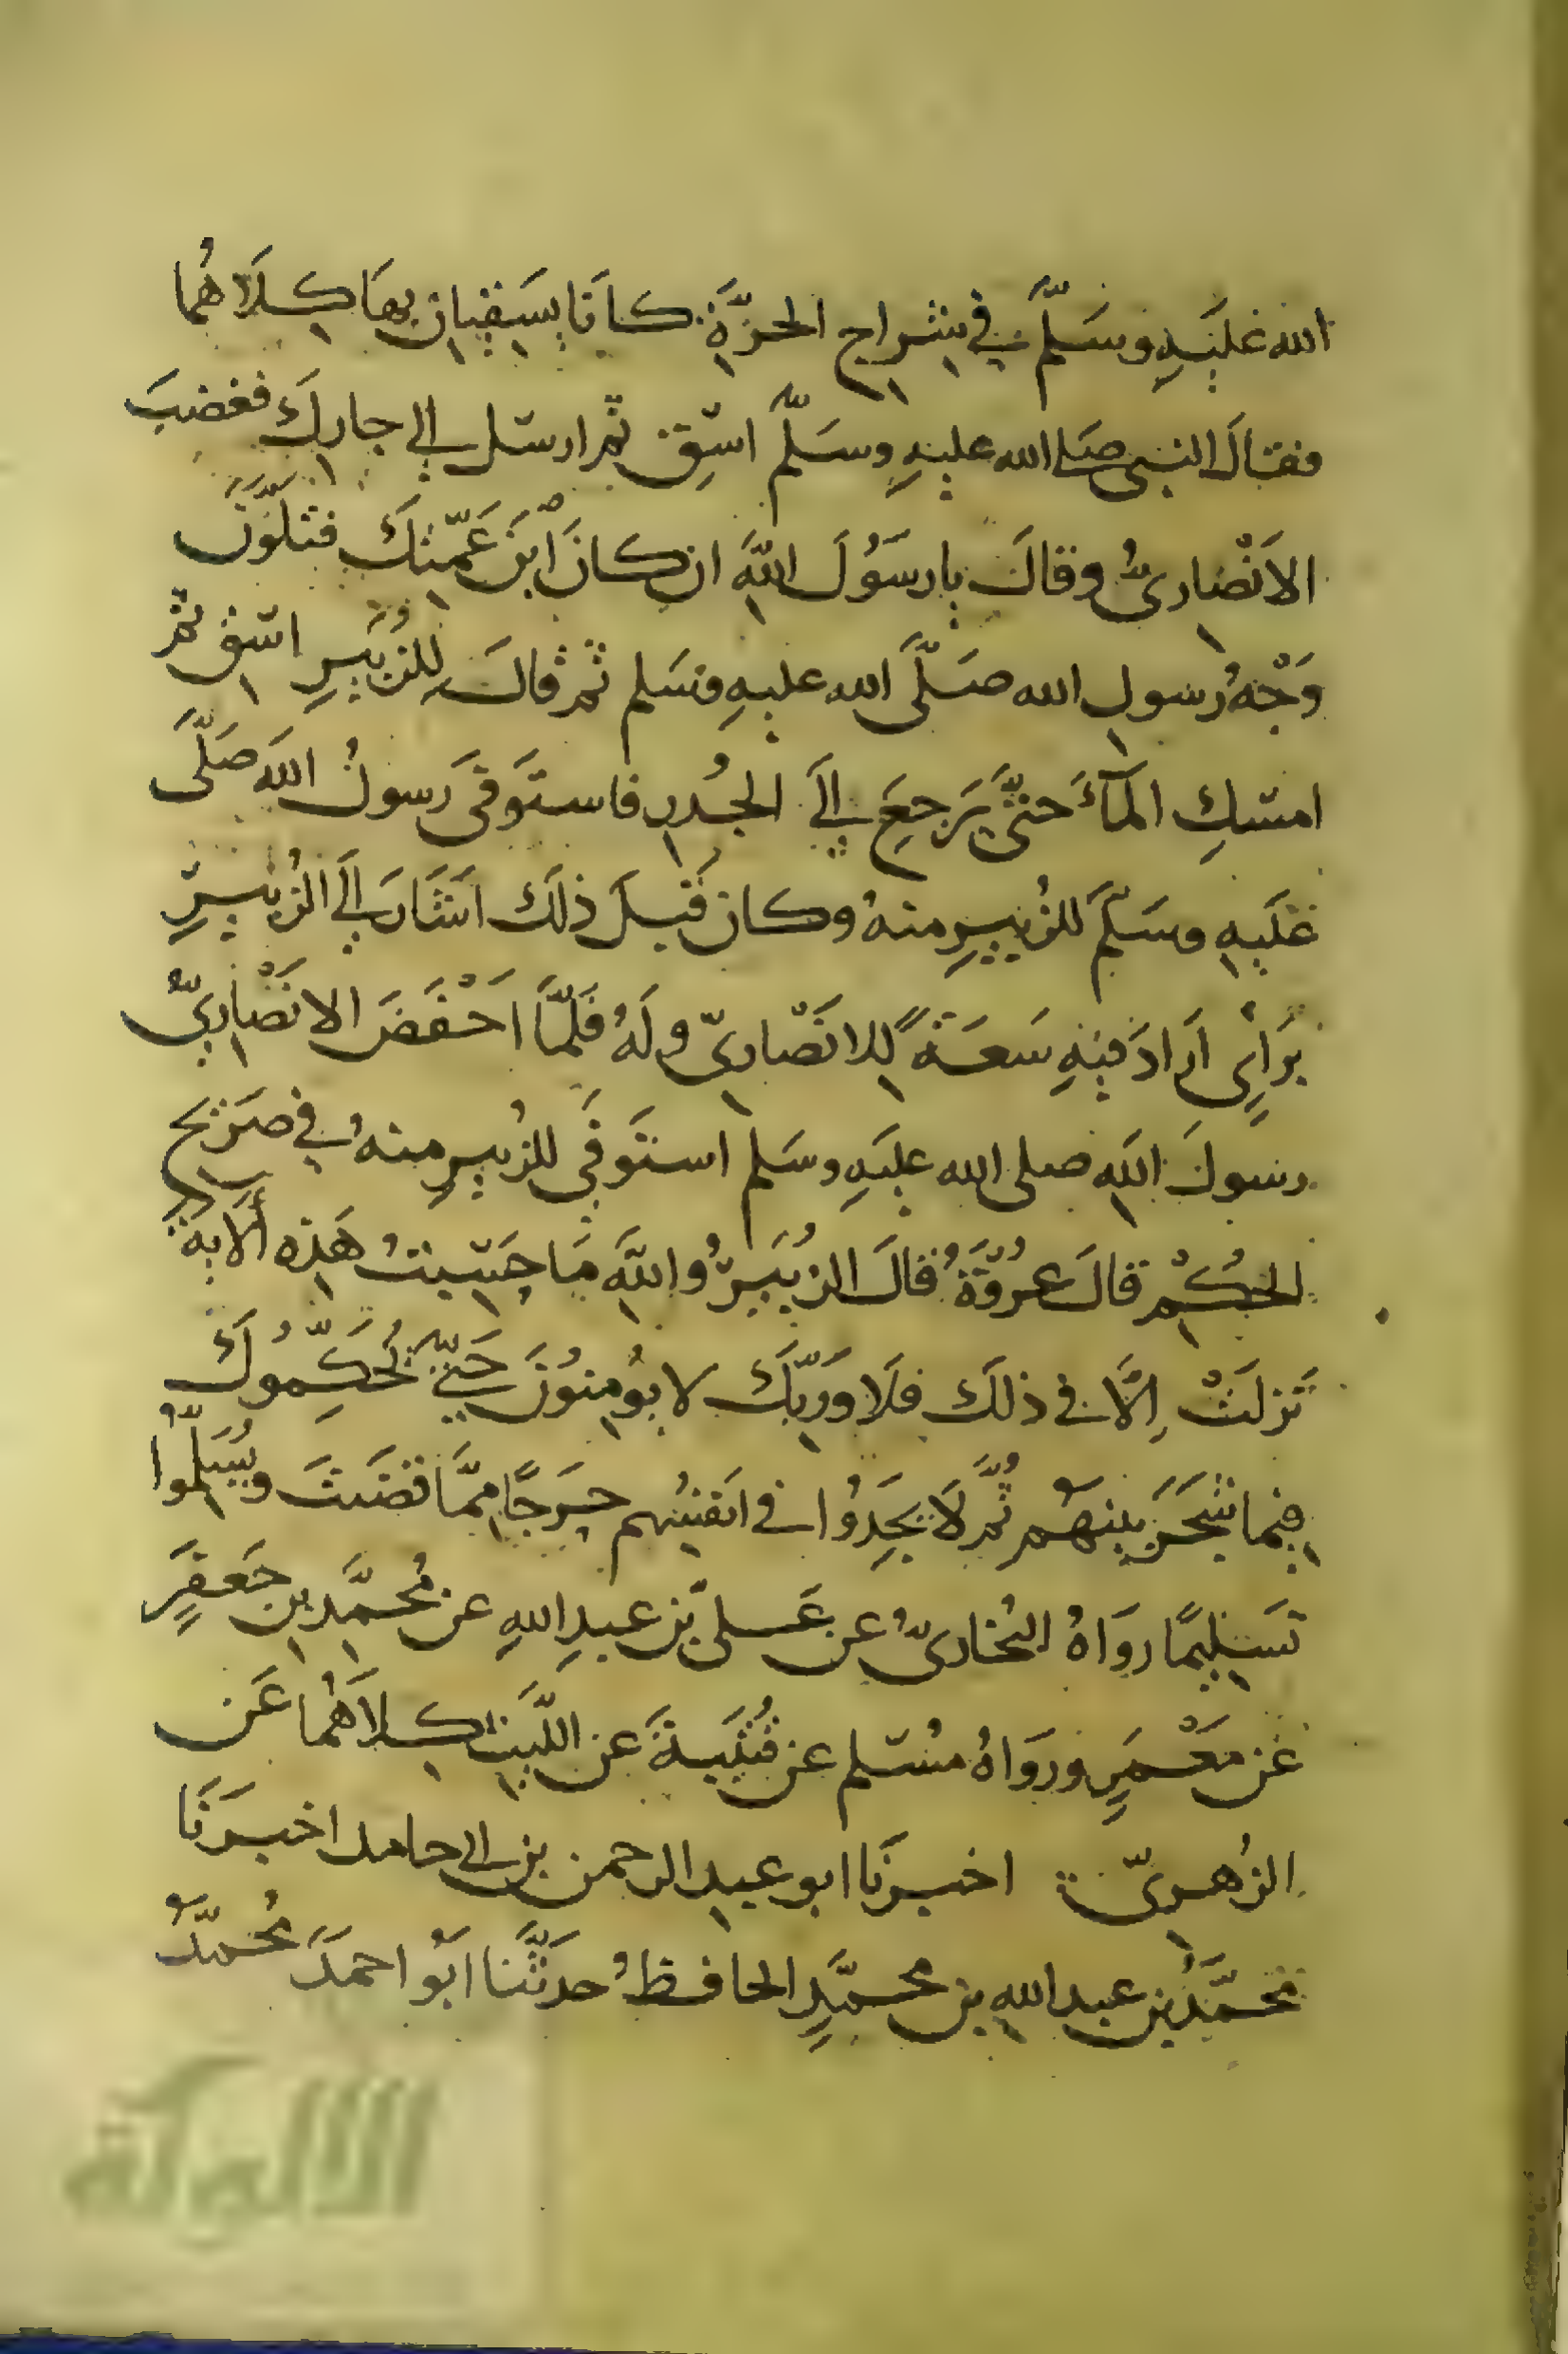 الله عليه وسلم في شراج الحرة كانا يسقيان بها كلاهما
فقال النبي صلى الله عليه وسلم اسق ثم ارسل الى جارك فغضب
الانصاري وقال يا رسول الله ان كان ابن عمتك فتلون
وجه رسول الله صلى الله عليه وسلم ثم قال للزبير اسق ثم
امسك الماء حتى يرجع الى الجدر فاستوفى رسول الله صلى
عليه وسلم للزبير منه وكان قبل ذلك اشار الى الزبير
براي اراد فيه سعة للانصاري وله فلما احفض الانصاري
رسول الله صلى الله عليه وسلم استوفى للزبير منه في صريح
الحكم قال عروة قال الزبير والله ما حسبت هذه الاية
نزلت الا في ذلك فلا وربك لا يومنون حتى يحكموك
فيما شجر بينهم ثم لا يجدوا في انفسهم حرجا مما قضيت ويسلموا
تسليما رواه البخاري عن علي بن عبد الله عن محمد بن جعفر
عن معمر ورواه مسلم عن قتيبة عن الليث كلاهما عن
الزهري اخبرنا ابو عبد الرحمن بن ابي حامد اخبرنا
محمد بن عبد الله بن محمد الحافظ حدثنا ابو احمد محمد
الألوكة